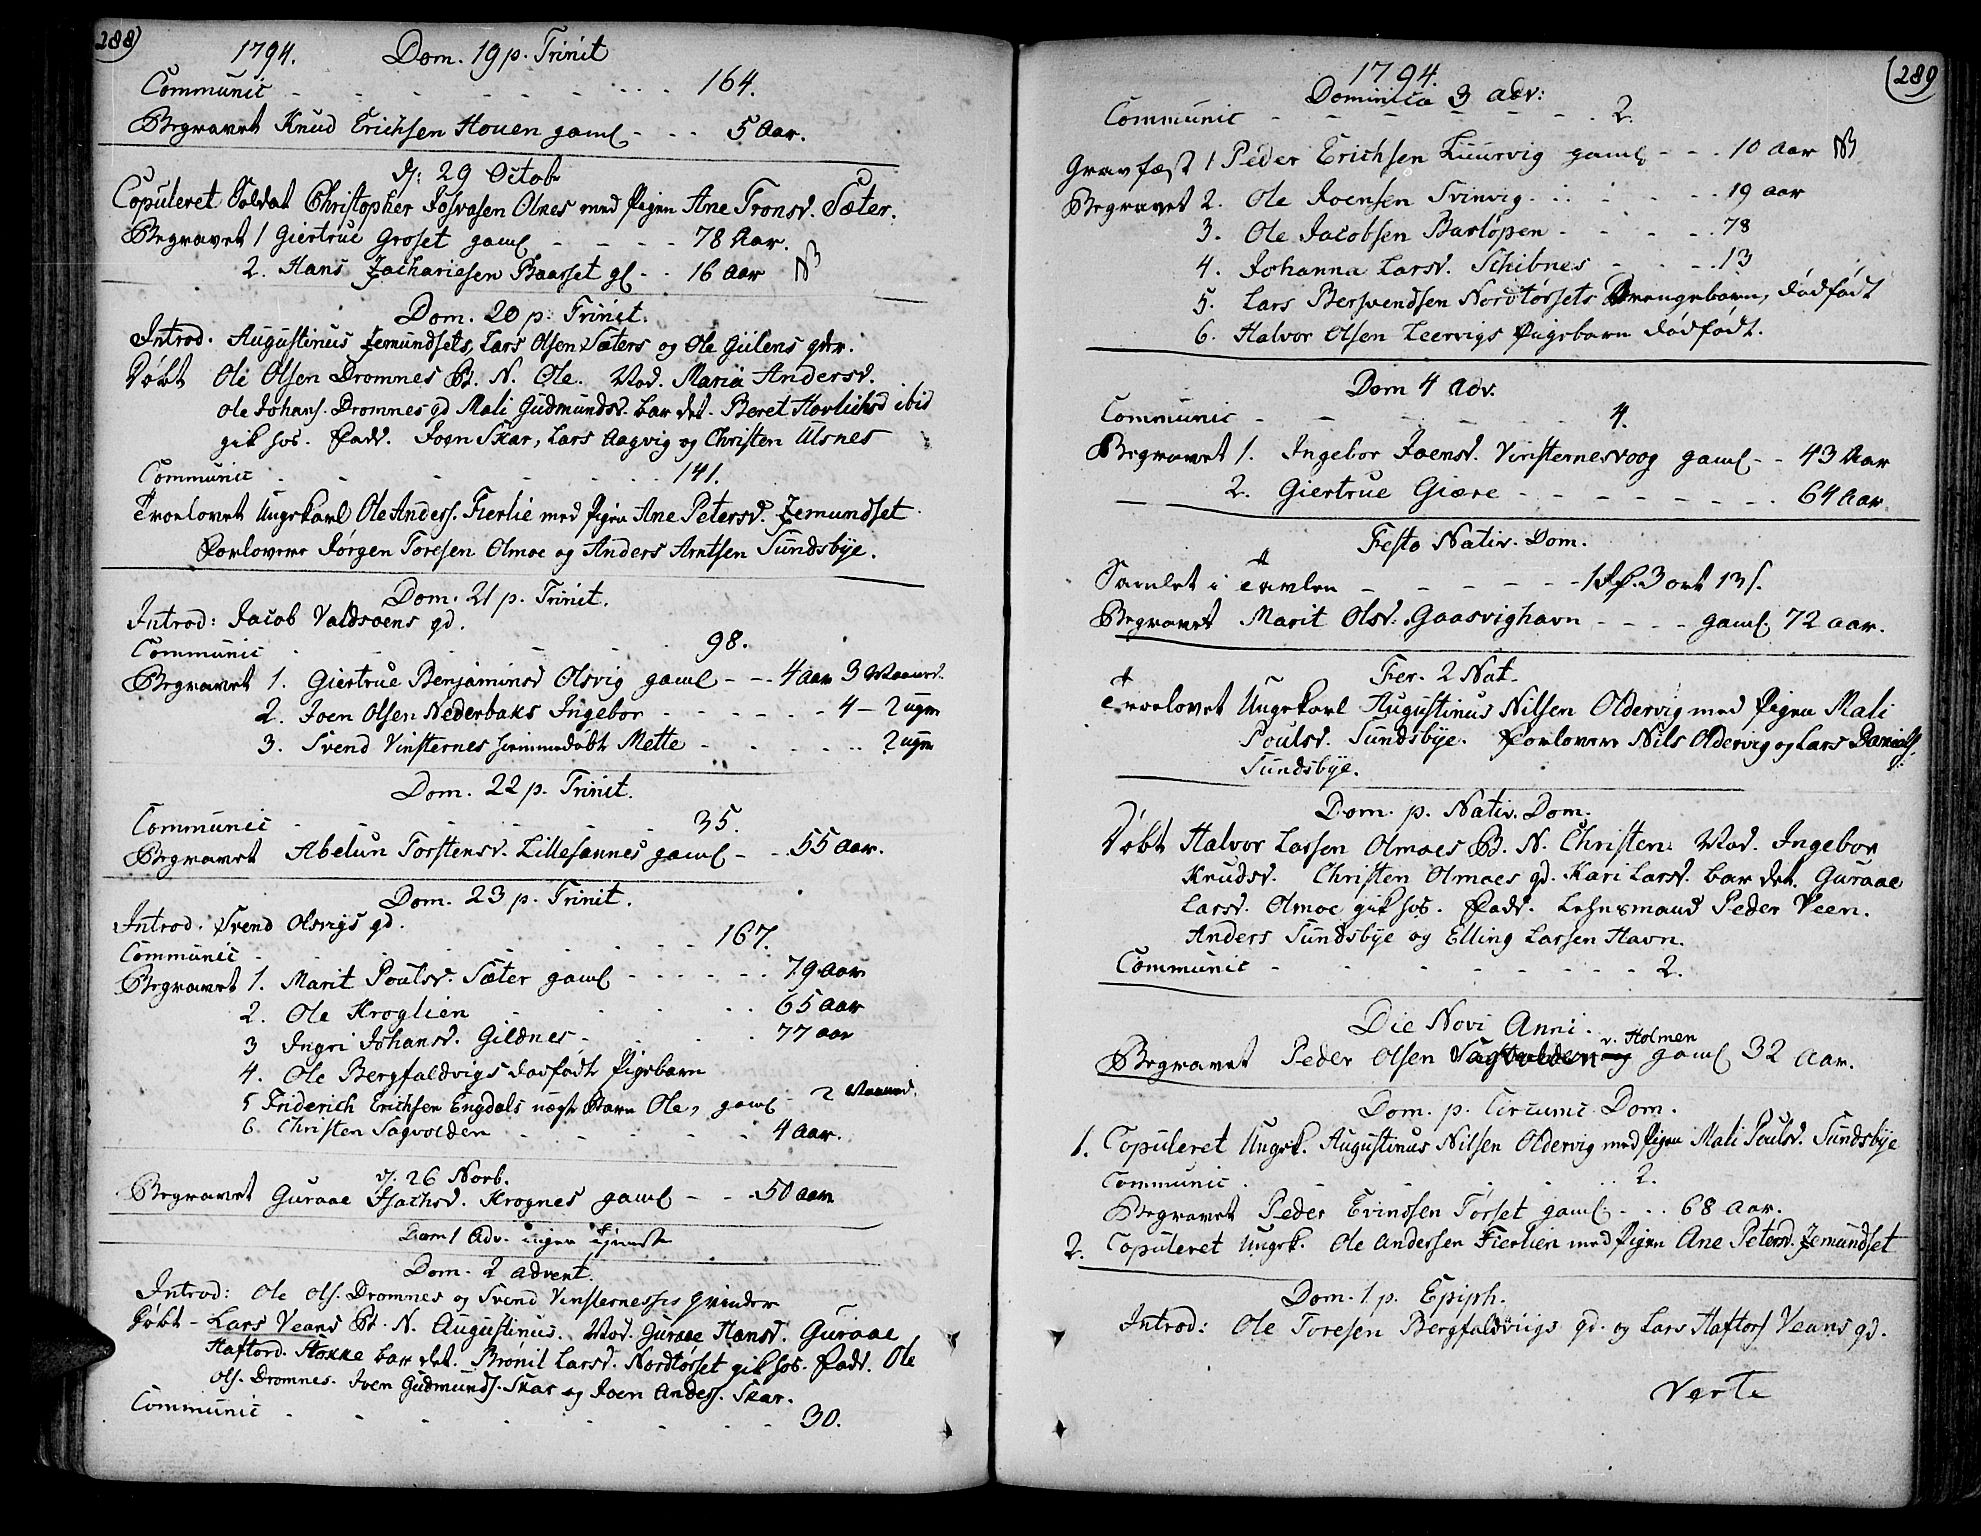 288)
1794. Dom. 19 p. Trinit
Communic - - - - - - - 164.
Begravet Knud Erichsen Houen gaml - - - 5 Aar.
d: 29 Octob
Copuleret Soldat Christopher Josvasen Olnes med Pigen Ane Tronsd. Sæter.
Begravet 1 Giertrue Groset gaml - - - - 78 Aar.
2. Hans Zachariesen Baasset gl - - 16 Aar NB
Dom. 20 p. Trinit.
Introd. Augustinus Zemundsets, Lars Olsen Sæters og Ole Gulens qdr.
Døbt Ole Olsen Dromnes B. N. Ole. Mod. Maria Andersd.
Ole Johans. Dromnes qd Mali Gudmundsd. bar det. Beret Hovlichsd ibid
gik hos. Fadd. Joen Skar, Lars Aagvig og Christen Ulsnes
Communic - - - - - - - 141.
Trorlovet Ungekarl Ole Anders. Fierlie med Pigen Ane Petersd. Zemundset
Forlovere Jørgen Toresen Olmoe og Anders Arntsen Sundsbye.
Dom. 21 p. Trinit.
Introd: Jacob Valdsoens qd.
Communic - - - - - - - 98.
Begravet 1. Giertrue Benjaminsd Olsvig gaml - - - 4 Aar 3 Maaned.
2. Joen Olsen Nederbaks Ingebor - - - - - - 4 - 2 uger
3. Svend Vinsternes hiemmedøbt Mette - - - - - 2 uger
Dom. 22 p. Trinit.
Communic - - - - - - - 35.
Begravet Abelun Torstensd. Lillesannes gaml - - 55 Aar.
Dom. 23 p. Trinit.
Introd. Svend Olsvigs qd.
Communic - - - - - - - 167.
Begravet 1. Marit Poulsd. Sæter gaml - - - - - - 79 Aar
2. Ole Kroglien - - - - - 65 Aar
3 Ingri Johansd. Gildnes - - - - 77 aar
4. Ole Bergfaldvigs dødfødt Pigebarn
5 Friderich Erichsen Engdals uægte Barn Ole, gaml - 2 Maaned.
6. Christen Sagvolden - - - - - 4 Aar.
d. 26 Novb.
Begravet Guraae Isachsd. Krognes gaml - - - 50 aar
Dom 1 Adv. ingen tieneste
Dom. 2 Advent.
Introd: Ole Ols. Dromnes og Svend Vinsternesses qvinder
Døbt - Lars Veans B. N. Augustinus. Mod. Guraae Hansd. Guraae
Haftord. Stokke bar det. Brønil Larsd. Nordtørset gik hos. Fadd. Ole
Ols. Dromnes. Joen Gudmunds. Skar og Joen Anders. Skar.
Communic - - - - - - - 30.
(289
1794.
Dominica 3 Adv:
Communic - - - - - - - 2.
Gravfæst 1 Peder Erichsen Luurvig gaml - - - 10 Aar NB
Begravet 2. Ole Joensen Svinvig. - - - - 19 aar
3. Ole Jacobsen Barløpen - - - - 78
4. Johanna Larsd. Schibnes - - - - 13
5. Lars Bersvendsen Nordtørsets Drengebarn, dødfødt
6. Halvor Olsen Leervigs Pigebarn dødfødt.
Dom 4 Adv.
Communic - - - - - - - 4.
Begravet 1. Ingebor Joensd. Vinsternesvoog gaml - - 43 Aar
2. Giertrue Giære - - - - - - - 64 Aar
Festo Nativ. Dom.
Samlet i Tavlen - - - - - - 1 Rd. 3 ort 13 s.
Begravet Marit Olsd. Gaasvighavn - - - - gaml. 72 aar.
Fer. 2 Nat.
Trorlovet Ungekarl Augustinus Nilsen Oldervig med Pigen Mali
Poulsd. Sundsbye. Forlovere Nils Oldervig og Lars Daniels.
Sundsbye.
Dom. p. Nativ. Dom.
Døbt Halvor Larsen Olmoes B. N. Christen. Mod. Ingebor
Knudsd. Christen Olmoes qd. Kari Larsd. bar det. Guraae
Larsd. Olmoe gik hos. Fadd. Lehnsmand Peder Veen.
Anders Sundsbye og Elling Larsen Havn.
Communic - - - - - - - 2.
Die Novi Anni.
v. Holmen
Begravet Peder Olsen Sagvolden gaml 32 Aar.
Dom. p. Circumc. Dom.
1. Copuleret Ungek. Augustinus Nilsen Oldervig med Pigen Mali Poulsd. Sundsbye
Communic - - - - - - 2.
Begravet Peder Evindsen Tørset gaml. - - - 68 Aar.
2. Copuleret Ungk. Ole Andersen Fierlien med Pigen Ane Petersd. Zemundset
Dom. 1 p. Epiph.
Introd: Ole Toresen Bergfaldviigs qd. og Lars Haftors Veans qd.
Verte